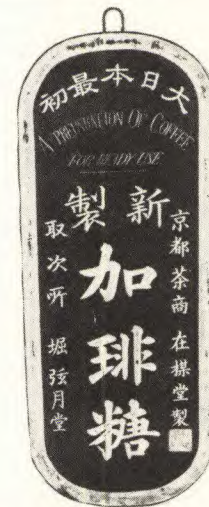 大日本最初
A PREPARATION OF COFFEE
FOR READY USE
新製
加琲糖
京都茶商 在楳堂製
取次所 堀弦月堂